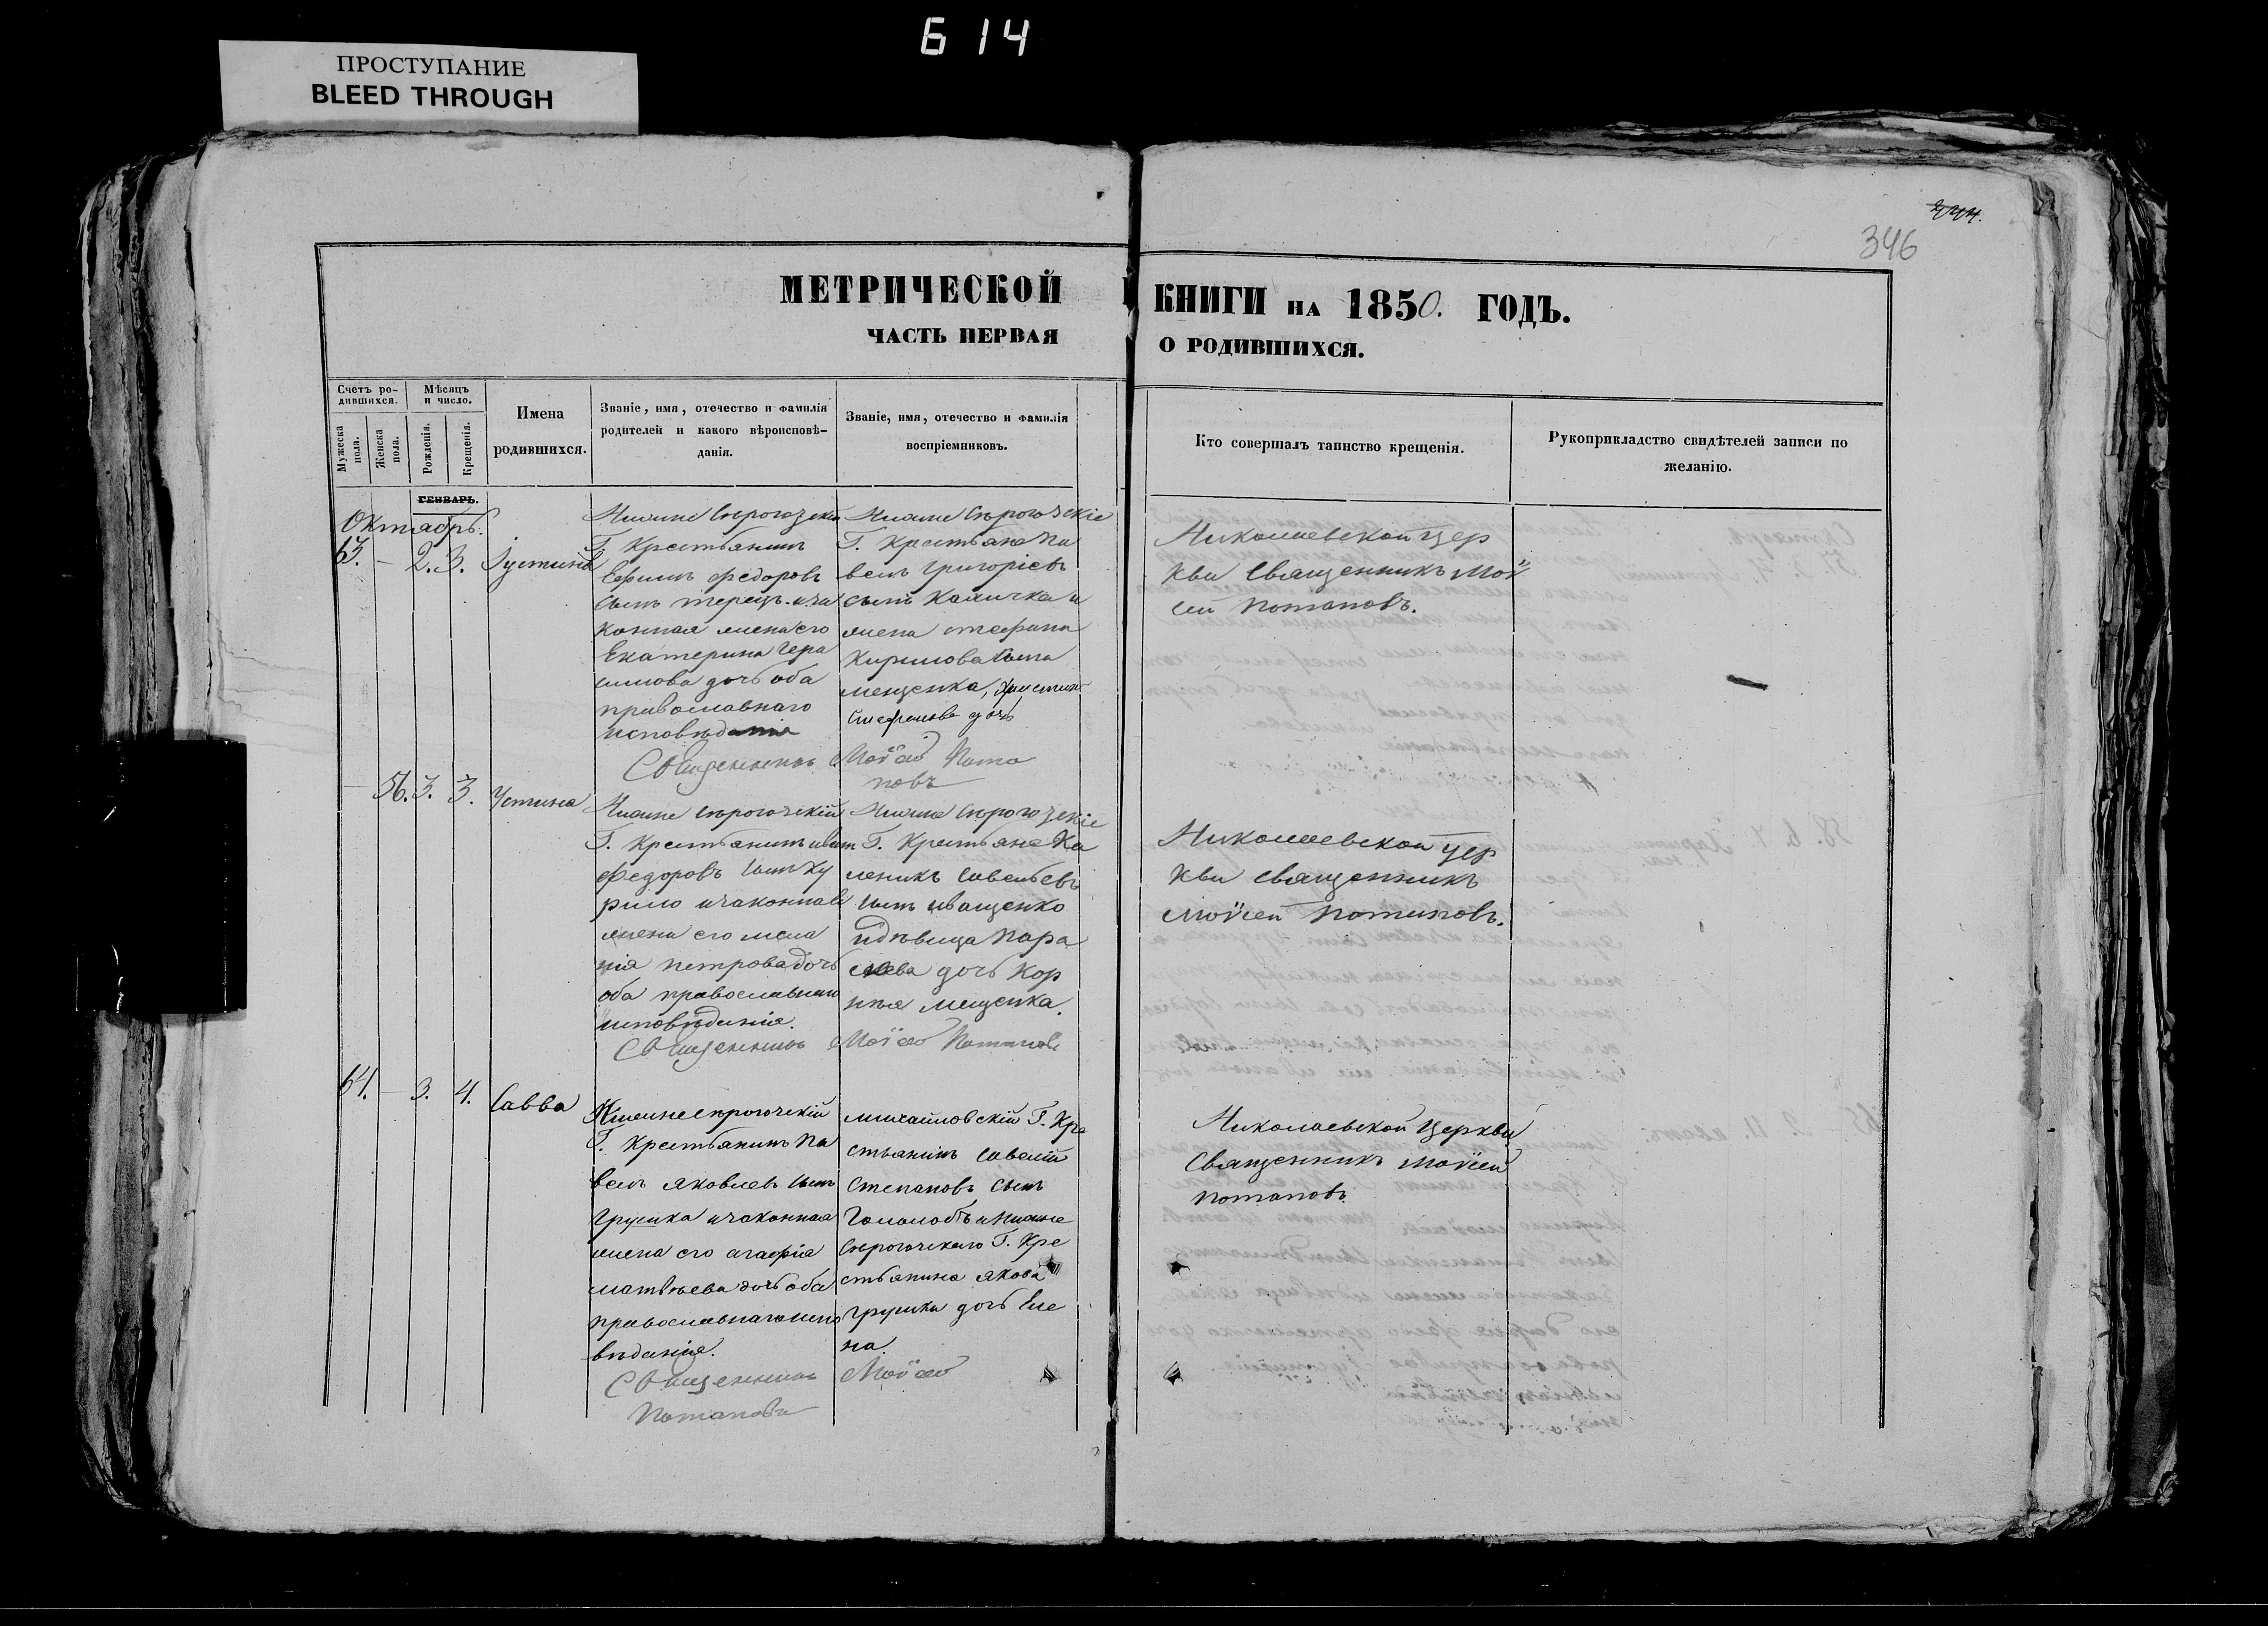 614
ПРОСТУПАНИЕ
BLEED THROUGH
346
МЕТРИЧЕСКОЙ КНИГИ НА 1850. ГОДЪ.
ЧАСТЬ ПЕРВАЯ О РОДИВШИХСЯ.
Счетъ ро-
дившихся.
Мѣсяцъ
и число.
Мужеска
пола.
Женска
пола.
Рожденія.
Крещенія.
Имена
родившихся.
Званіе, имя, отечество и фамилія
родителей и какого вѣроисповѣ-
данія.
Званіе, имя, отечество и фамилія
воспріемниковъ.
Кто совершалъ таинство крещенія.
Рукоприкладство свидѣтелей записи по
желанію.
ГЕНВАРЬ.
Октябрь.
63. - 2. 3. Іустинъ
Нижне Сѣрогозскій
Г. Крестьянинъ
Ефимъ Федоровъ
сынъ Терещ. и за
конная жена его
Екатерина Гера
симова дочь оба
православнаго
исповѣданія
Нижне Сѣрогозскіе
Г. Крестьяне Па
велъ Григорієвъ
сынъ Каличка и
жена Стефана
Кирилова сына
мещенка,
Стефанова дочь
Священникъ Моѵсей Пота
повъ
Николаевской цер
кви Священникъ Моѵ
сей Потаповъ.
- 56. 3. 3. Устина
Нижне Сѣрогозскій
Г. Крестьянинъ Иванъ
Федоровъ сынъ Ку
рило и законная
жена его Мела
нія Петрова дочь
оба православнаго
исповѣданія.
Нижне Сѣрогозскіе
Г. Крестьяне Ка
леникъ Савельевъ
сынъ Иващенко
и дѣвица Пара
скева дочь Кор
нѣя Мещенка.
Священникъ Моѵсей Потаповъ
Николаевской цер
кви Священникъ
Моѵсей Потаповъ.
64. - 3. 4. Савва
Нижне Сѣрогозскій
Г. Крестьянинъ Па
велъ Яковлевъ сынъ
Грушка и законная
жена его Агафія
Матвѣева дочь оба
православнаго испо
вѣданія.
Михайловскій Г. Кре
стьянинъ Савелій
Степановъ сынъ
Гололобъ и Нижне
Сѣрогозскаго Г. Кре
стьянина Якова
Грушки дочь Еле
на.
Священникъ Моѵсей
Потаповъ
Николаевской Церкви
Священникъ Моѵсей
Потаповъ